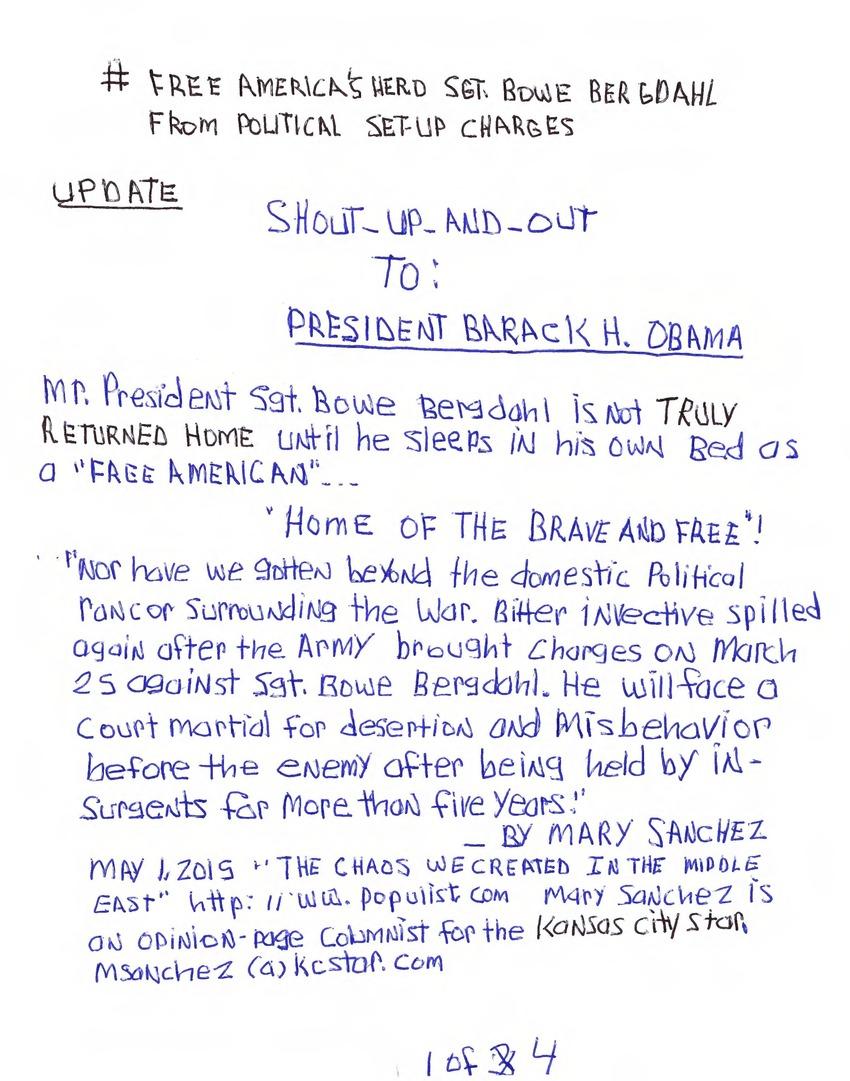 # FREE AMERICA'S HERO SGT. BOWE BERGDAHL
FROM POLITICAL SET-UP CHARGES
UPDATE
SHOUT-UP-AND-OUT
TO:
PRESIDENT BARACK H. OBAMA
Mr. President Sgt. Bowe Bergdahl is Not TRULY
RETURNED HOME until he sleeps in his OWN Bed as
a "FREE AMERICAN"...
"HOME OF THE BRAVE AND FREE"!
"Nor have we gotten beyond the domestic Political
rancor surrounding the War. Bitter invective spilled
again after the ARMY brought Charges ON March
25 against Sgt. Bowe Bergdahl. He will face a
Court martial for desertion and Misbehavior
before the enemy after being held by in-
surgents for more than five years."
_ BY MARY SANCHEZ
MAY 1, 2015 "THE CHAOS WE CREATED IN THE MIDDLE
EAST" http://ww.populist.com Mary Sanchez is
an opinion-page Columnist for the Kansas City Star.
Msanchez (a) kcstar.com
1 of 4